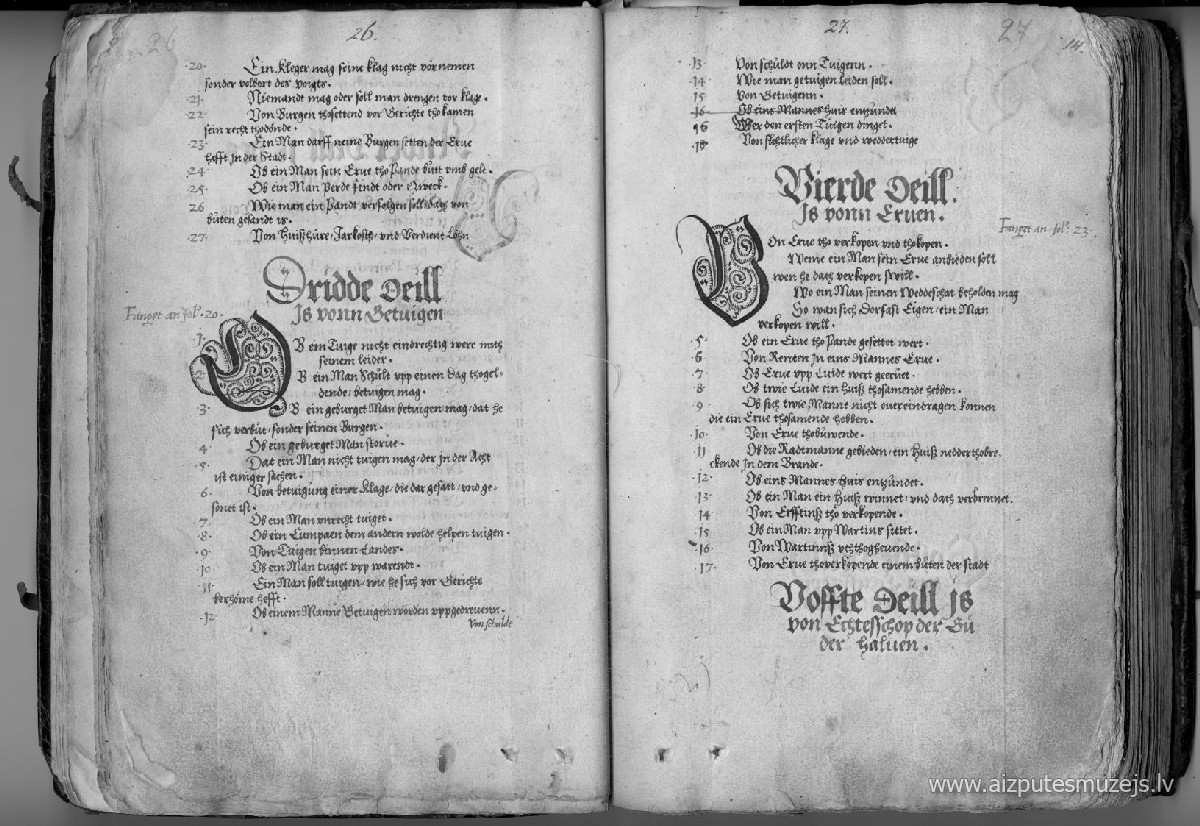 26
26.
20. Ein Kleger mag seine klag nicht vornemen
sonder volbort des voigts.
21. Niemandt mag oder soll man drengen tor klage.
22. Von Burgen thosettend vor Gerichte tho kamen
sein recht thodonde.
23. Ein Man darff neine Burgen setten der Erue
hefft Jn der Stadt.
24. Ob ein Man sein Erue tho Pande butt vmb gelt.
25. Ob ein Man Perde findt oder Qweck.
26. Wie man ein Pandt verfolgen soll, dath von
buten gesandt is.
27. Von Huißhüre, und Verdient Lohn
Dridde Deill
Js vonn Getuigen
Fangt an fol. 20.
1. OB ein Tuige nicht eindrechtig were mith
seinem leider.
2. OB ein Man Schult vpp einen Dag thogel-
dende, betuigen mag.
3. OB ein geburget Man betuigen mag, dat he
sich verbut, sonder seinen Burgen.
4. Ob ein geburget Man storue.
5. Dat ein Man nicht tuigen mag, der Jn der Acht
ist einiger sachen.
6. Von betuigung einer Klage, die dar gesatt, vnd ge-
sonet ist.
7. Ob ein Man vnrecht tuiget.
8. Ob ein Cumpaen dem andern wolde helpen tuigen.
9. Von Tuigen bennen Landes.
10. Ob ein Man tuiget vpp warendt.
11. Ein Man soll tuigen, wie he sich vor Gerichte
berhome hefft.
12. Ob einem Manne Getuigen worden vppgedreuenn.
Von schuldt
27.
27
14.
13. Von schuldt vnn Tuigenn.
14. Wie man getuigen leiden soll.
15. Von Getuigenn.
16. Ob eins Mannes Huis enzundet
16 Wer den ersten Tuigen dinget.
18. Von sichtlicher klage vnd weddertuige
Vierde Deill.
Js vonn Eruen.
Fanget an fol. 23.
VOn Erue tho verkopen vnd thokopen.
Weme ein Man sein Erue anbieden soll
wen he dath verkopen will.
Wo ein Man seinen Weddeschat beholden mag
So wan sich Dorfast Eigen, ein Man
verkopen will.
5. Ob ein Erue tho Pande gesettet wert.
6. Von Renten Jn eins Mannes Erue.
7. Ob Erue vpp Luide wert geeruet.
8. Ob twie Luide ein Huiß thosamende hebben.
9. Ob sich twie Manne nicht ouereindragen konnen
die ein Erue thosamende hebben.
10. Von Erue thobuwende.
11. Ob die Radtmanne gebieden, ein Huiß nedder thobre
ckende Jn dem Brande.
12. Ob eins Mannes Huis enzundet.
13. Ob ein Man ein Huiß winnet, vnd dath verbrennet.
14. Von Erfftinß tho verkopende.
15. Ob ein Man vpp Wartins settet.
16. Von Wartinnß vththogheuende.
17. Von Erue thoverkopende einem buten der stadt
Voffte Deill js
von Echtesschop der Gü
der haluen.
www.aizputesmuzejs.lv